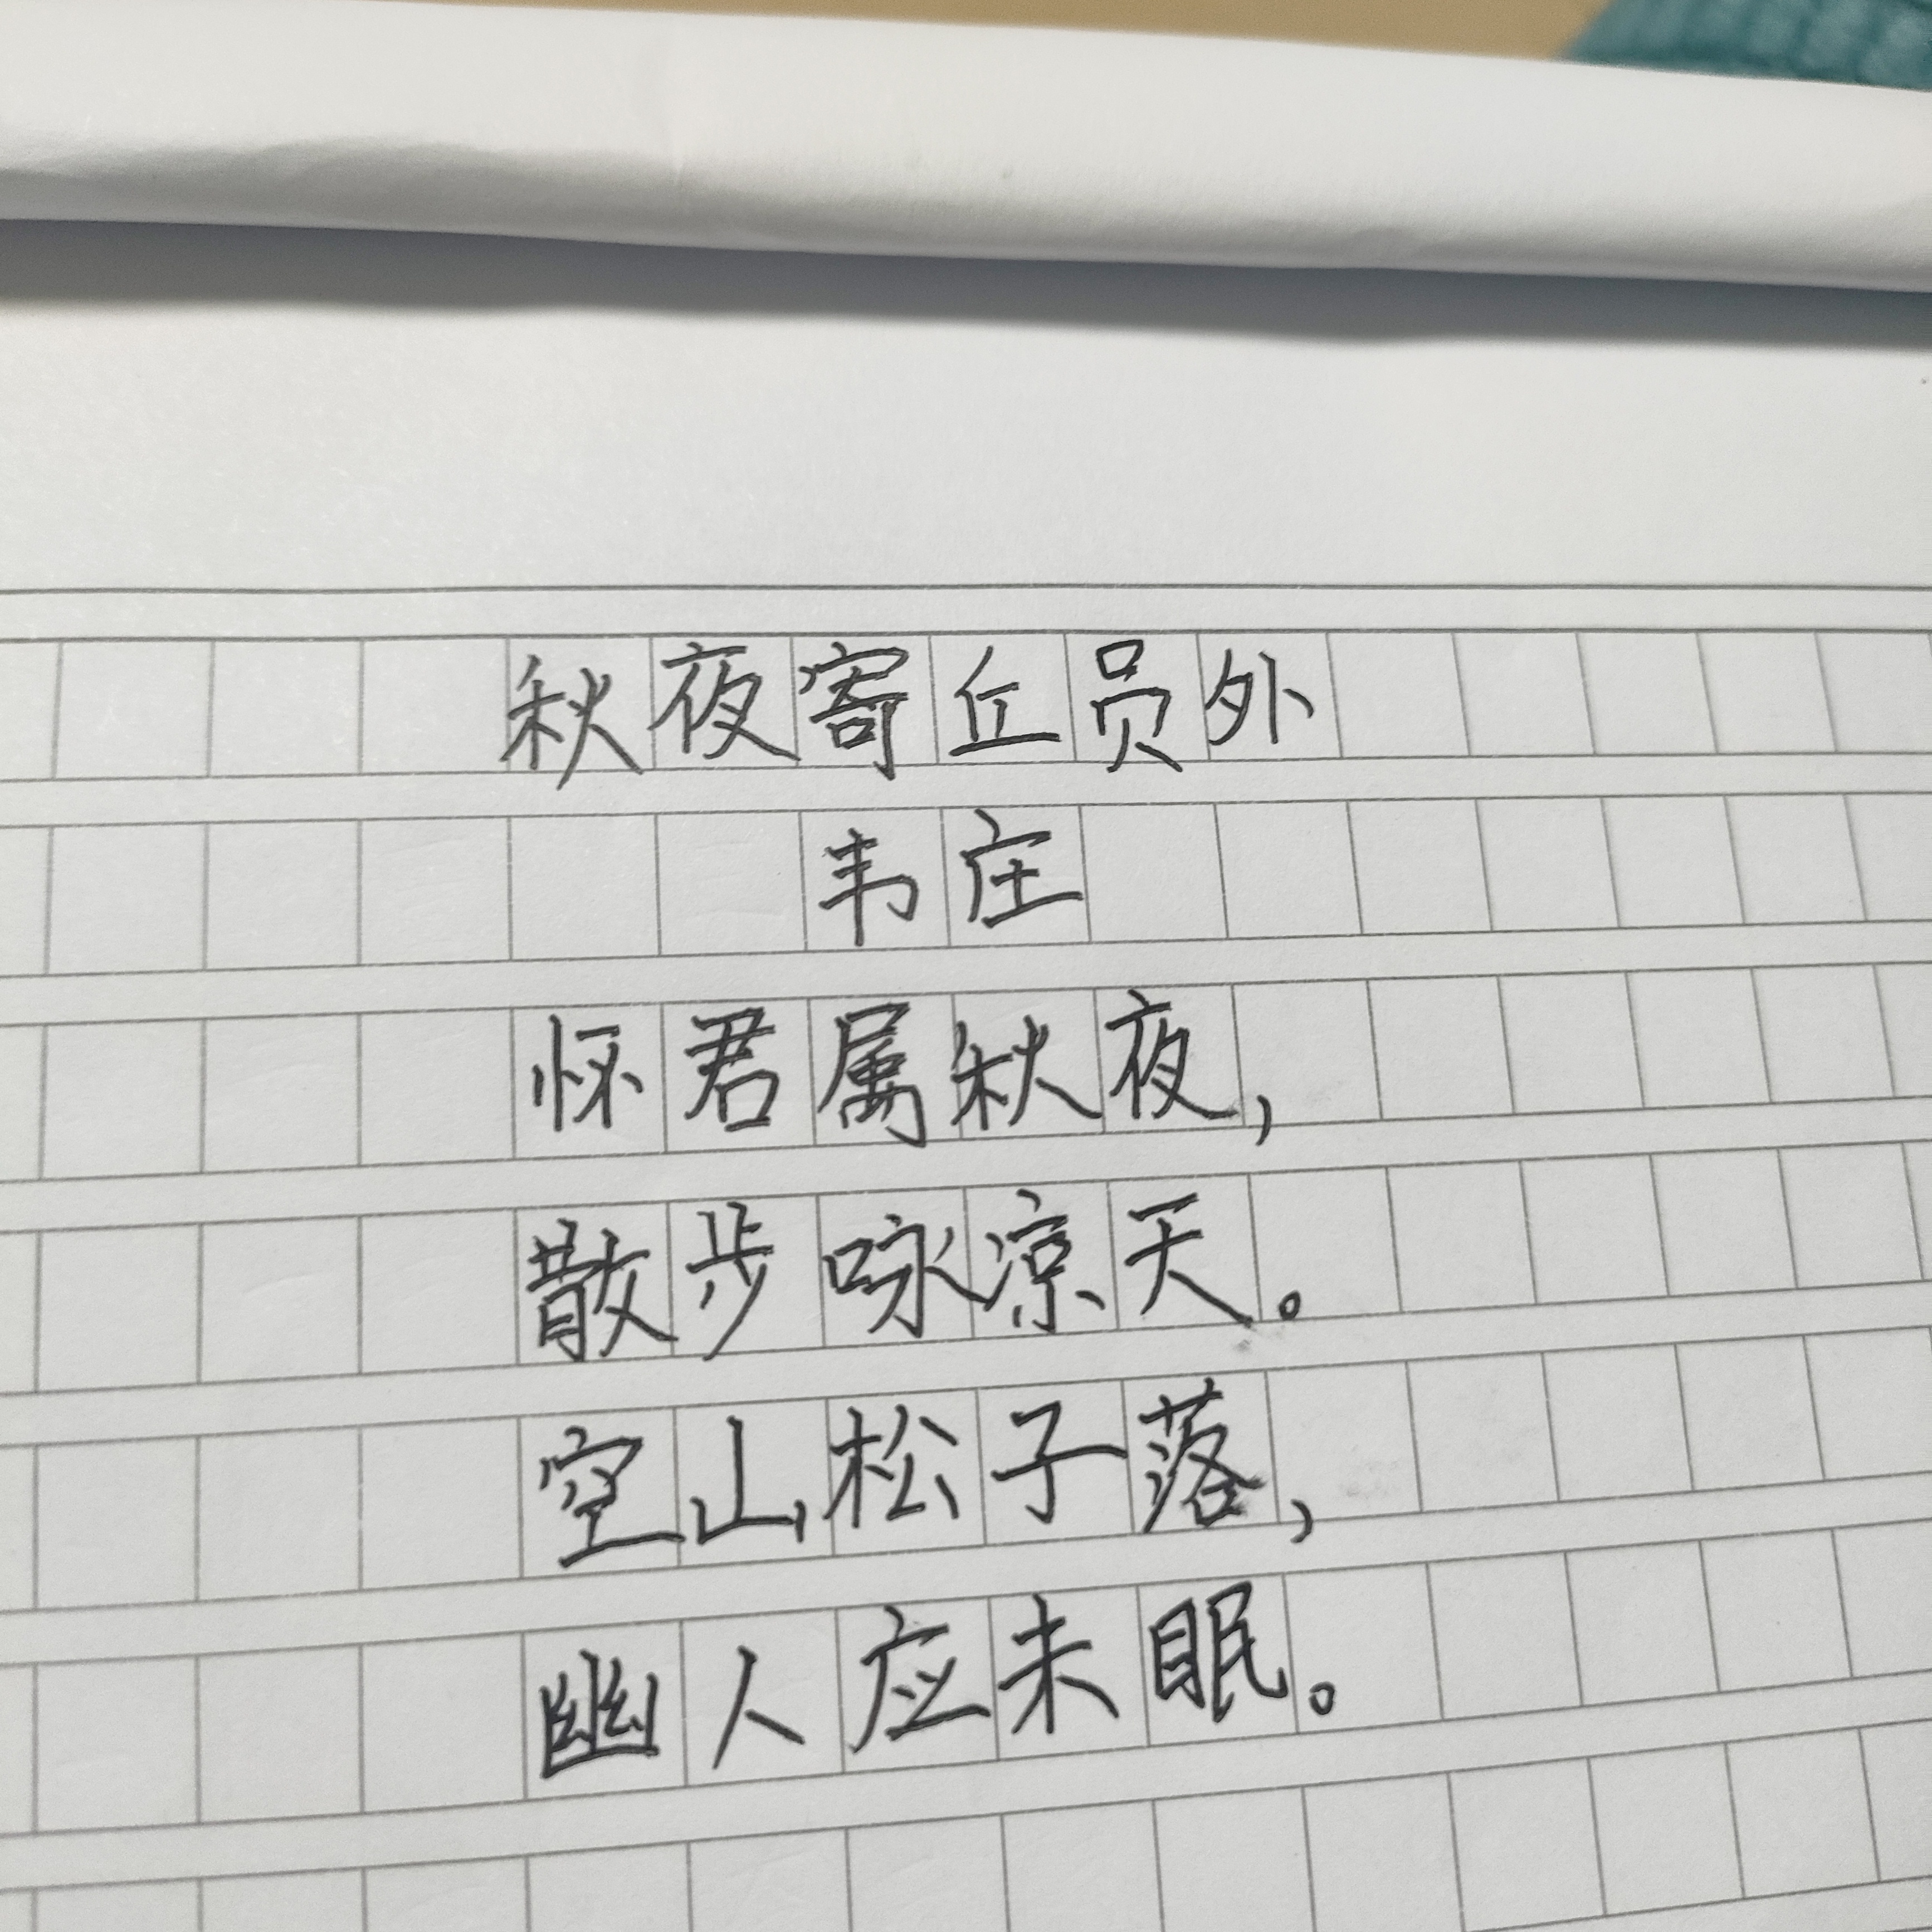 秋夜寄丘员外
韦庄
怀君属秋夜，
散步咏凉天。
空山松子落，
幽人应未眠。